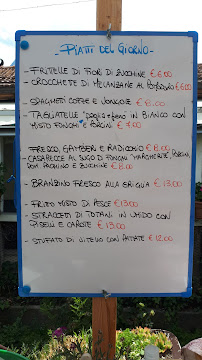 - PIATTI DEL GIORNO -
- FRITELLE DI FIORI DI ZUCCHINE €6.00
- CROCCHETTE DI MELANZANE AL POMODORO €6.00
- SPAGHETI COZZE E VONGOLE €8.00
- TAGLIATELLE "paglia e fieno" IN BIANCO CON
MISTO FUNGHI E PORCINI €7.00
FRESCO, GAMBERI E RADICCHIO €8.00
- CASARECCE AL SUGO DI FUNGHI "MARGHERITE", PORCINI,
POM. PACHINO E ZUCCHINE €8.00
- BRANZINO FRESCO ALLA GRIGLIA €13.00
- FRITO MISTO DI PESCE €13.00
- STRACCETI DI TOTANI IN UMIDO CON
PISELLI E CAROTE €13.00
- STUFATO DI VITELLO CON PATATE €12.00